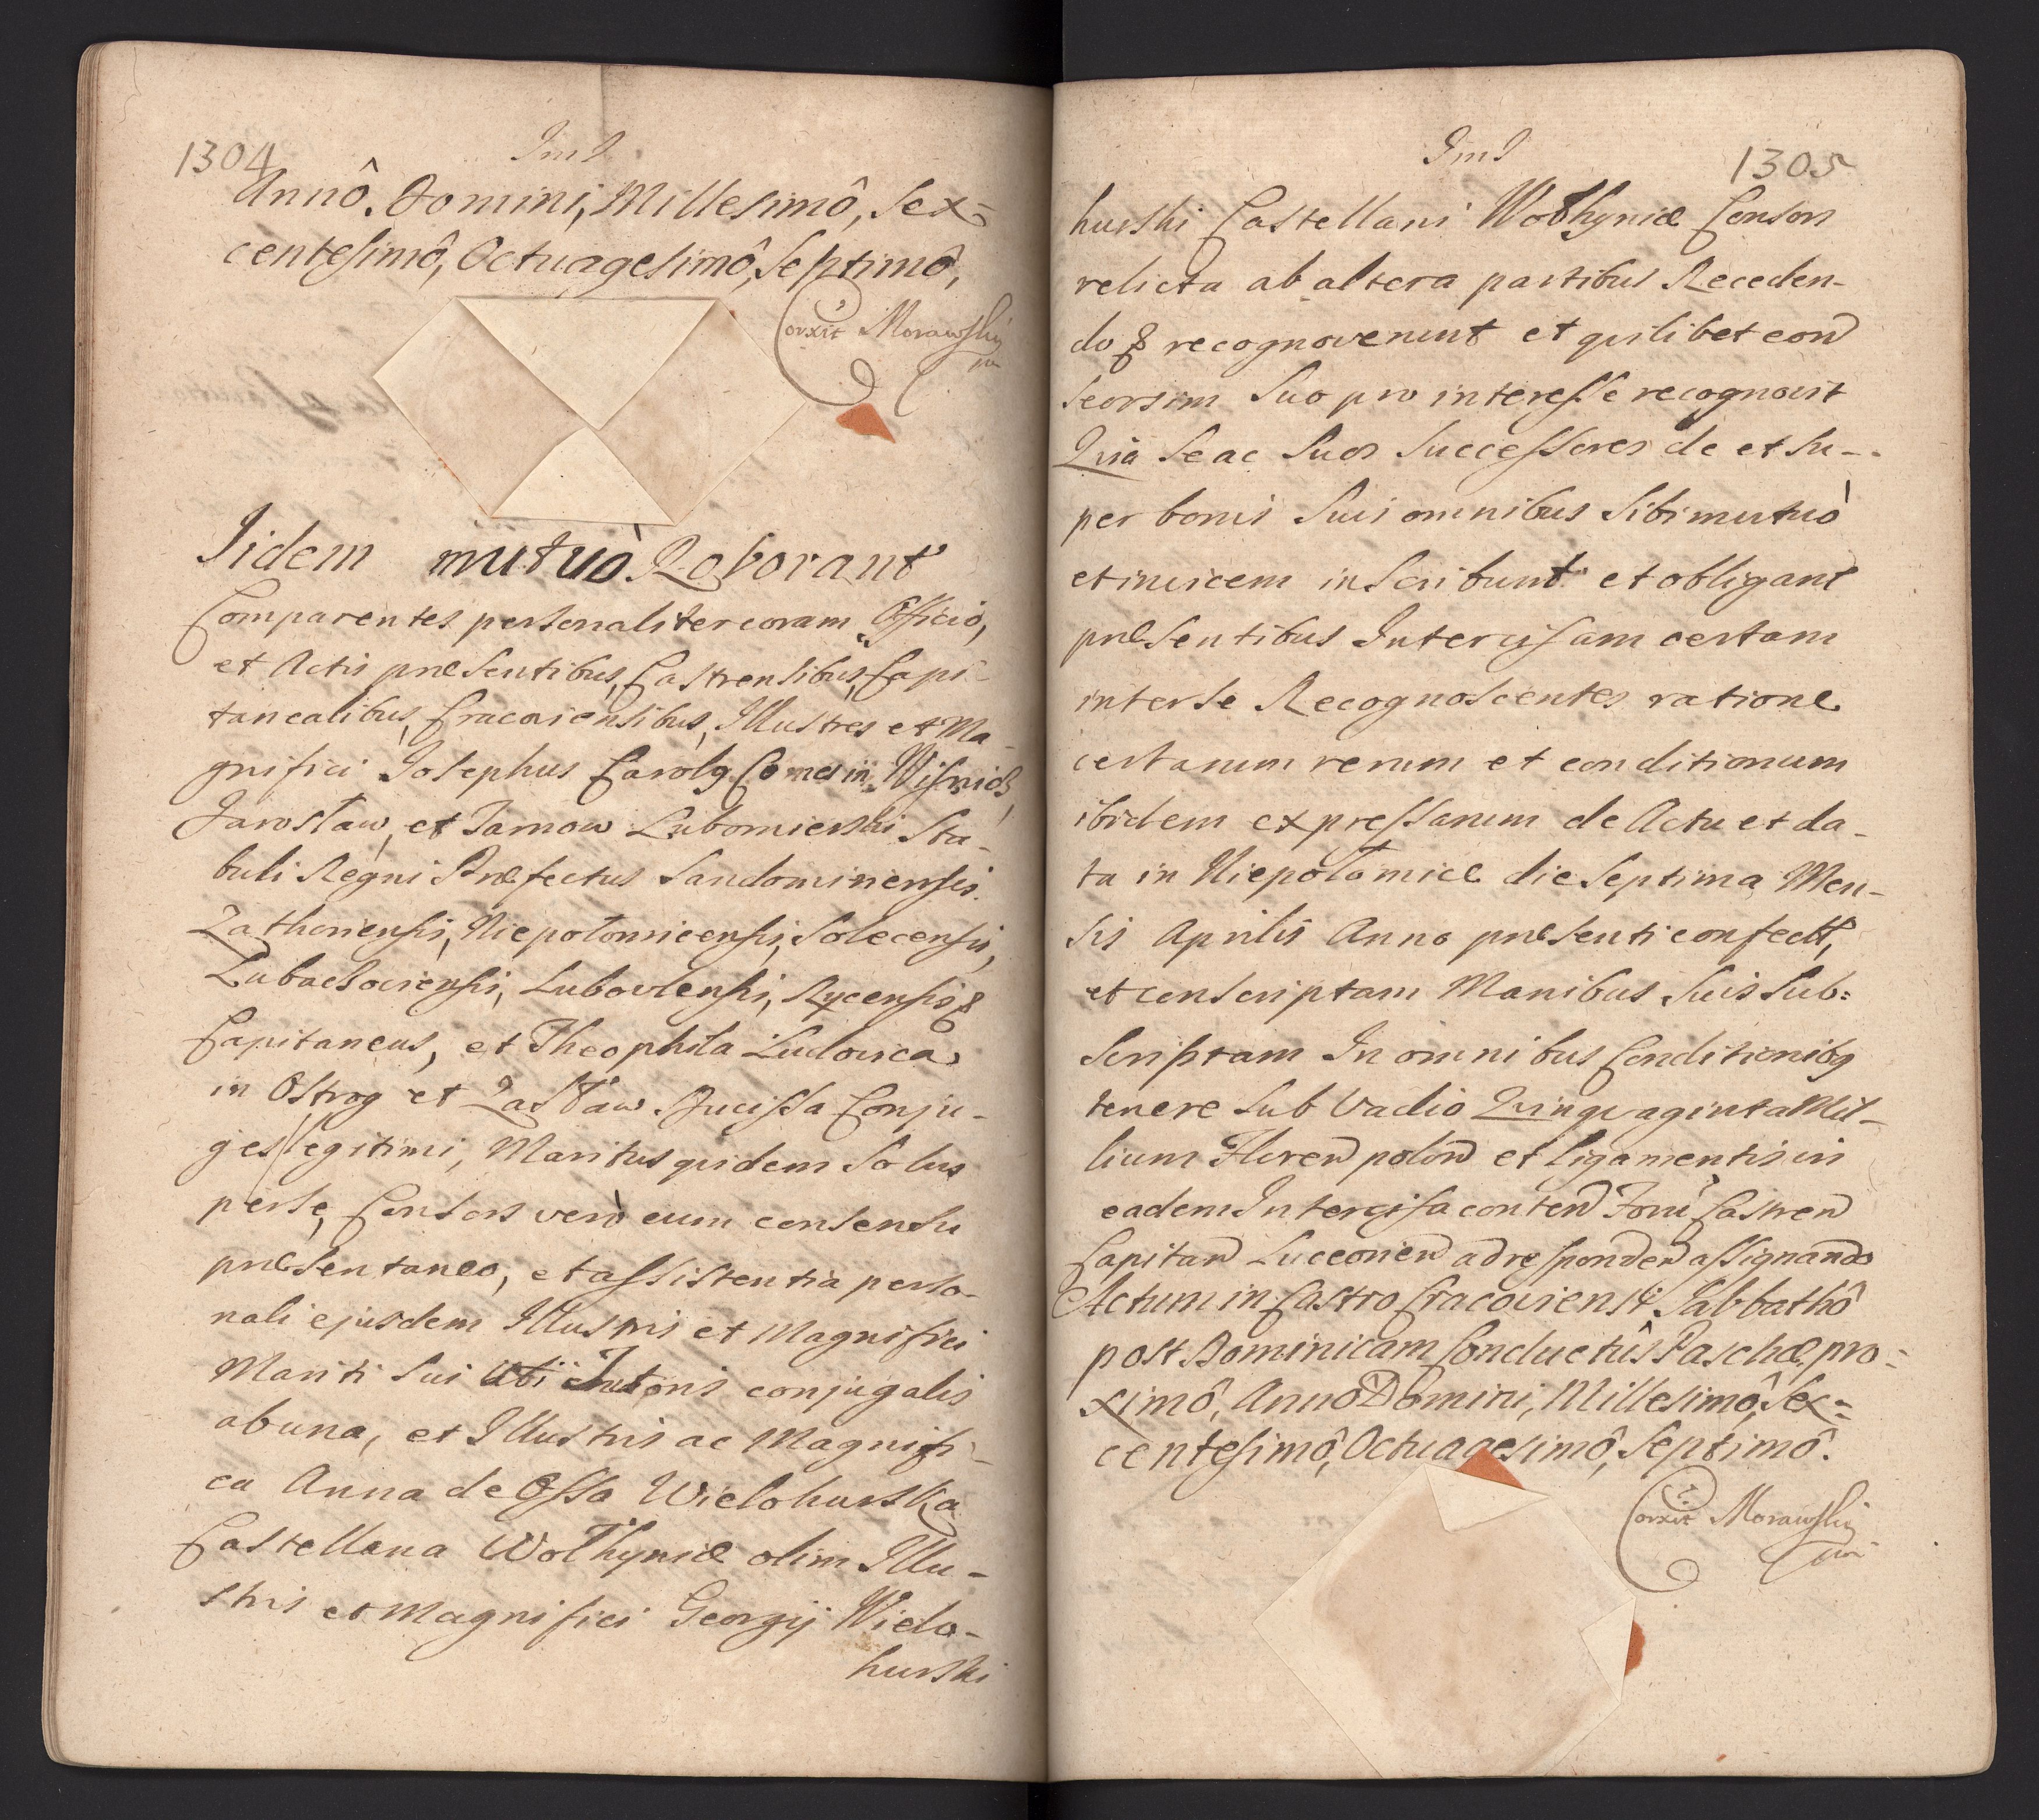 1304
Annô Domini, Millesimô, Sex=
centesimô, Octuagesimô, Septimô,
Corxit Morawsky
mp
Iidem mutuò Roborant
Comparentes personaliter coram Officio,
et Actis præsentibus, Castrensibus, Capi-
tanealibus, Cracoviensibus, Illustres et Ma-
gnifici Josephus Carolg Comes in Wisnicz,
Jarosław, et Tarnow Lubomierski Sta-
buli Regni Præfectus Sandomiriensis.
Zathoriensis, Niepołomicensis, Solecensis,
Lubaczoviensis, Lubovlensis, Rycensis &
Capitaneus, et Theophila Ludovica
in Ostrog et Zasław Ducissa Conju-
ges legitimi, Maritus quidem solus
per se, Consors verò cum consensu
præsentaneo, et assistentia perso-
nali ejusdem Illustris et Magnifici
Mariti sui uti Tutoris conjugalis
ab una, et Illustris ac Magnifi-
ca Anna de Ossa Wielohurska
Castellana Wołhyniæ olim Illu-
stris et Magnifici Georgij Wielo-
hurski
1305
hurski Castellani Wołhyniæ Consors
relicta ab altera partibus Receden-
do & recognoverunt et quilibet eorů
seorsim suo pro interesse recognovit
Quia se ac suos successores de et su-
per bonis suis omnibus sibi mutuò
et invicem inscribunt et obligant
præsentibus Intercisam certam
inter se Recognoscentes ratione
certarum rerum et conditionum
ibidem expressarum de Actu et da-
ta in Niepołomice die Septima Men-
sis Aprilis Anno præsenti confect,
et conscriptam Manibus suis sub=
scriptam In omnibus Conditionibg
tenere sub Vadio Quinquaginta Mil-
lium Floren polon et ligamentis in
eadem Intercisa conten Fori Castren
Capitan Luceorien ad responden assignando
Actum in Castro Cracoviensi Sabbathô
post Dominicam Conductûs Paschæ pro=
ximô, Annô Domini, Millesimô, Sex=
centesimô, Octuagesimô, Septimô.
Corxit Morawsky
mp